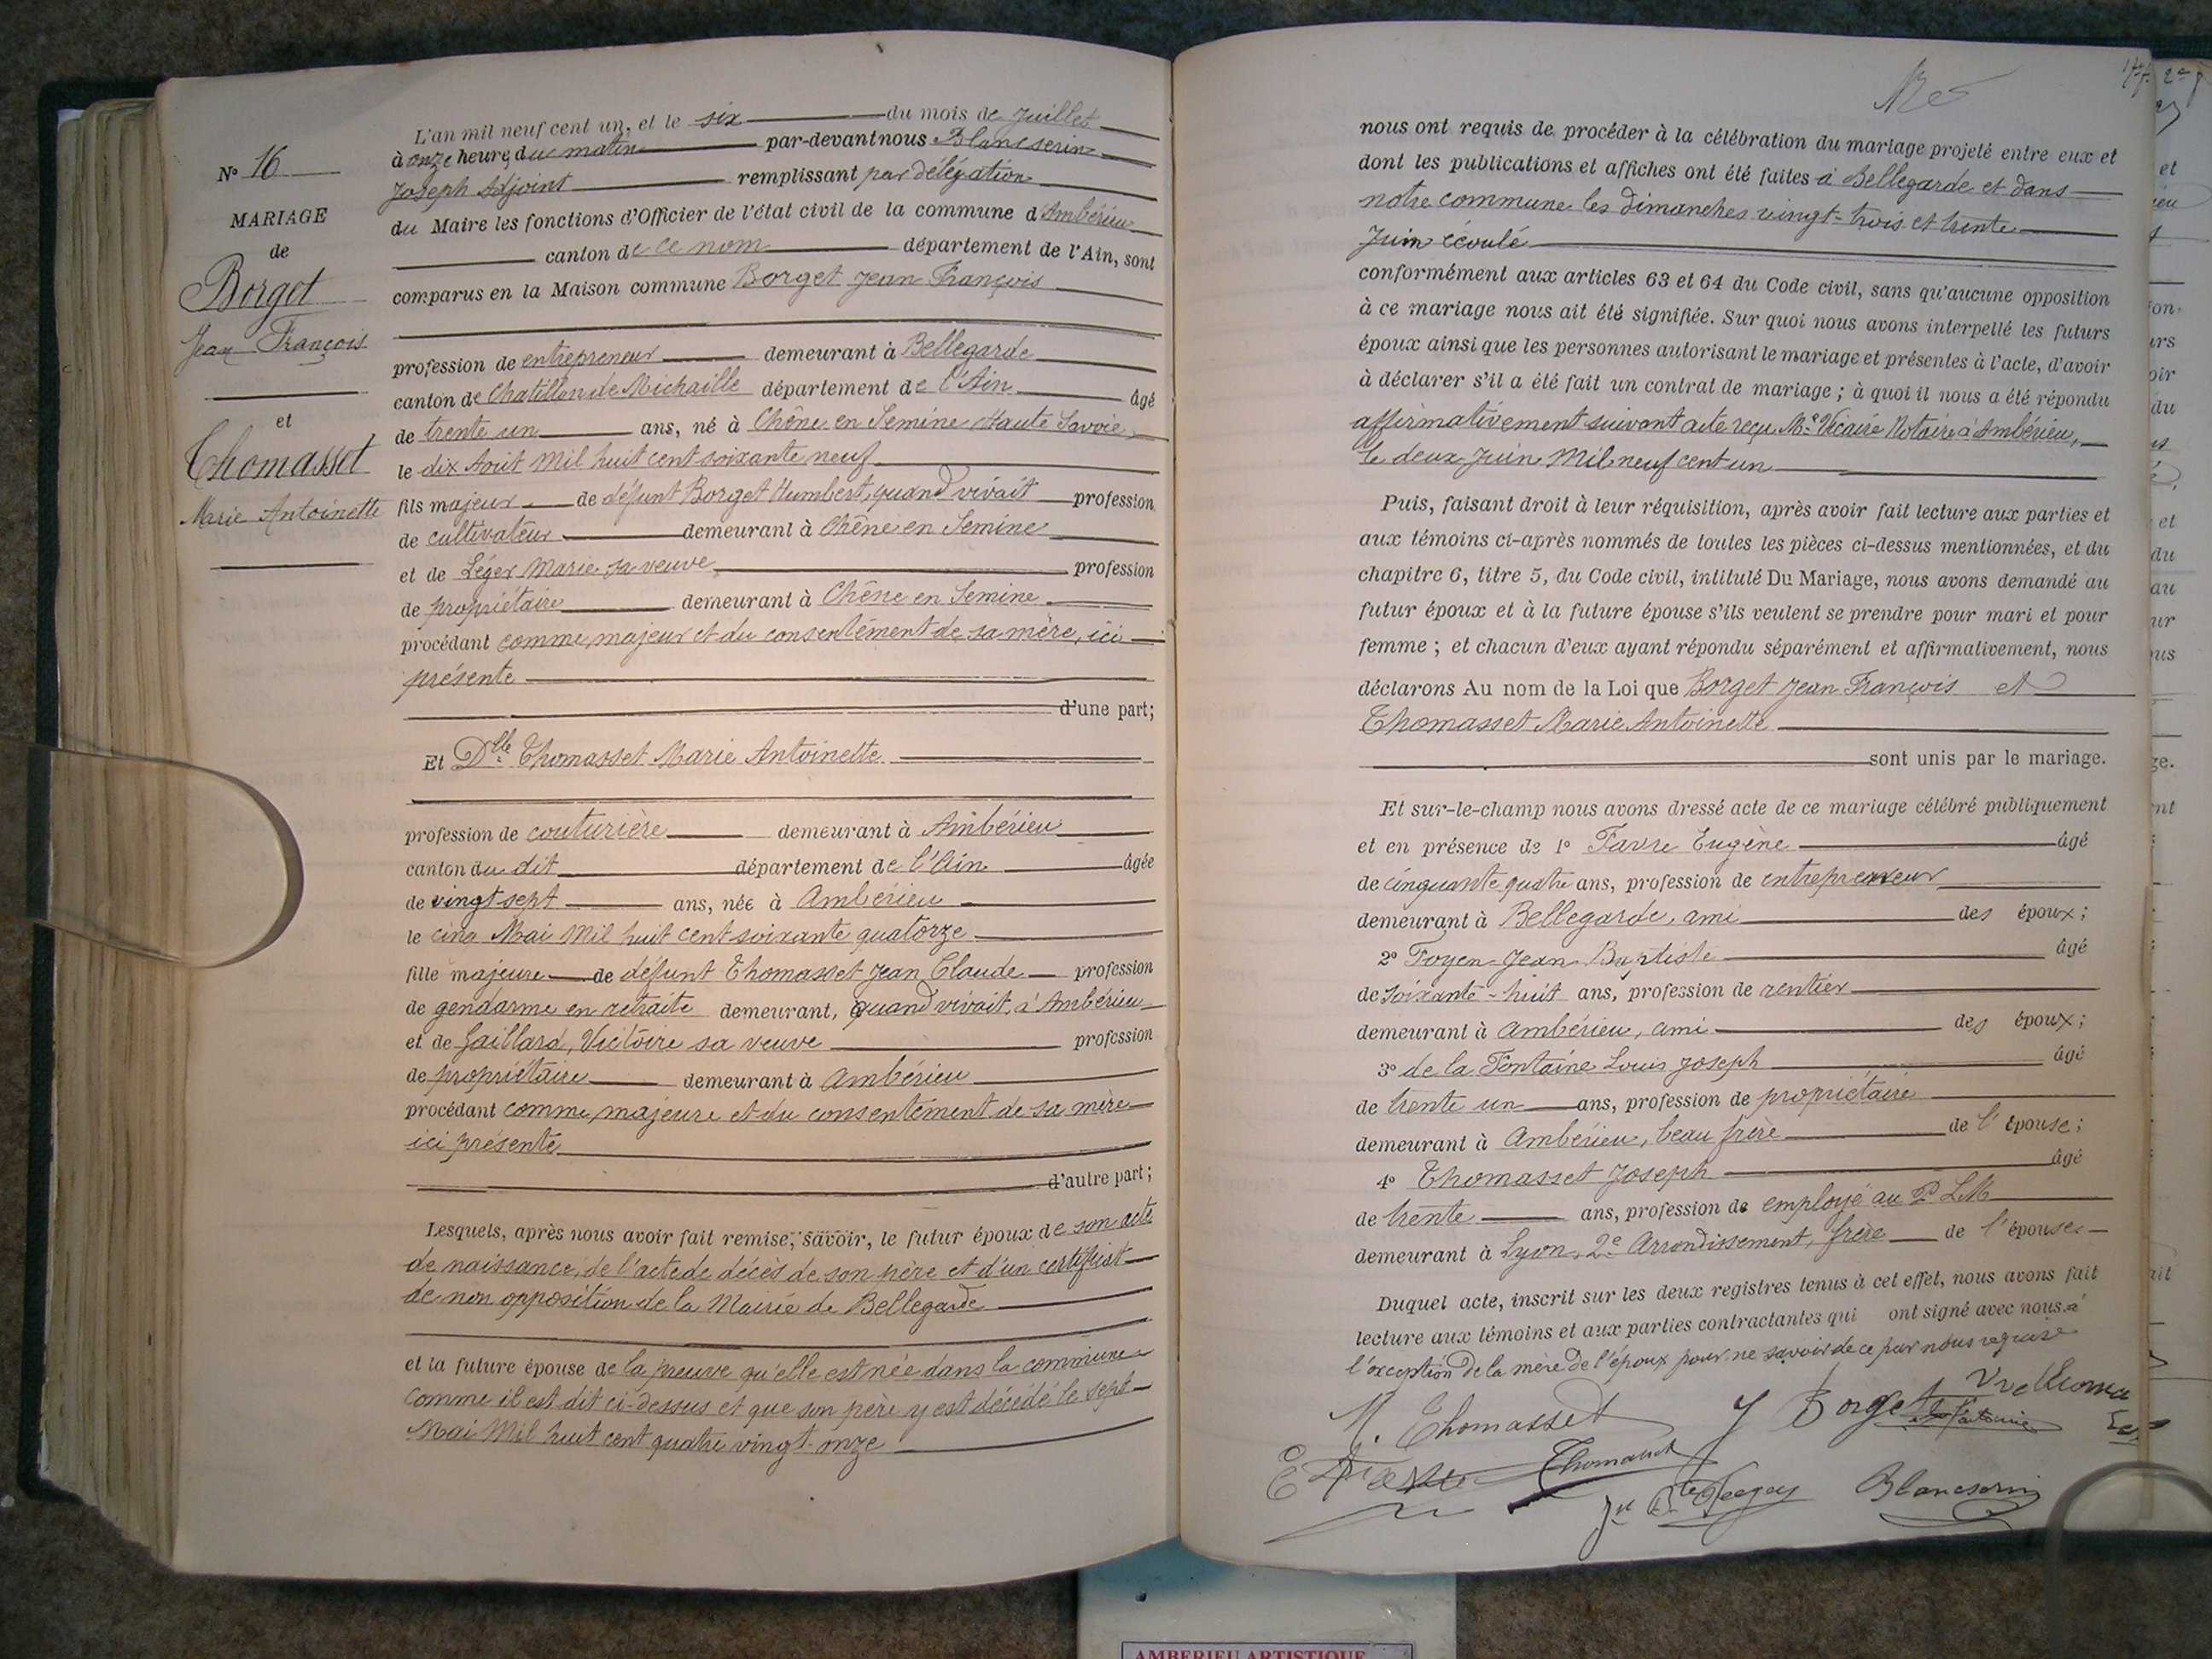 N° 16
MARIAGE
de
Borget
Jean François
et
Thomasset
Marie Antoinette
L'an mil neuf cent un, et le six du mois de Juillet
à onze heures du matin par-devant nous Blancserin
Joseph Adjoint remplissant par délégation
du Maire les fonctions d'Officier de l'état civil de la commune d'Ambérieu
canton de ce nom département de l'Ain, sont
comparus en la Maison commune Borget Jean François
profession de entrepreneur demeurant à Bellegarde
canton de Chatillon de Michaille département de l'Ain âgé
de trente un ans, né à Chêne en Semine Haute Savoie,
le dix Août Mil huit cent soixante neuf
fils majeur de défunt Borget Humbert, quand vivait profession
de cultivateur demeurant à Chêne en Semine
et de Léger Marie sa veuve profession
de propriétaire demeurant à Chêne en Semine
procédant comme majeur et du consentement de sa mère, ici
présente
d'une part;
Et Dlle Thomasset Marie Antoinette
profession de couturière demeurant à Ambérieu
canton du dit département de l'Ain âgée
de vingt sept ans, née à Ambérieu
le cinq Mai Mil huit cent soixante quatorze
fille majeure de défunt Thomasset Jean Claude profession
de gendarme en retraite demeurant, quand vivait, à Ambérieu
et de Gaillard, Victoire sa veuve profession
de propriétaire demeurant à Ambérieu
procédant comme majeure et du consentement de sa mère
ici présente
d'autre part;
Lesquels, après nous avoir fait remise, savoir, le futur époux de son acte
de naissance, de l'acte de décès de son père et d'un certificat
de non opposition de la Mairie de Bellegarde
et la future épouse de la preuve qu'elle est née dans la commune
comme il est dit ci-dessus et que son père y est décédé le sept
Mai Mil huit cent quatre vingt-onze
nous ont requis de procéder à la célébration du mariage projeté entre eux et
dont les publications et affiches ont été faites à Bellegarde et dans
notre commune les dimanches vingt-trois et trente
Juin écoulé
conformément aux articles 63 et 64 du Code civil, sans qu'aucune opposition
à ce mariage nous ait été signifiée. Sur quoi nous avons interpellé les futurs
époux ainsi que les personnes autorisant le mariage et présentes à l'acte, d'avoir
à déclarer s'il a été fait un contrat de mariage ; à quoi il nous a été répondu
affirmativement suivant acte reçu Me Vicaire Notaire à Ambérieu,
le deux Juin Mil neuf cent un
Puis, faisant droit à leur réquisition, après avoir fait lecture aux parties et
aux témoins ci-après nommés de toutes les pièces ci-dessus mentionnées, et du
chapitre 6, titre 5, du Code civil, intitulé Du Mariage, nous avons demandé au
futur époux et à la future épouse s'ils veulent se prendre pour mari et pour
femme ; et chacun d'eux ayant répondu séparément et affirmativement, nous
déclarons Au nom de la Loi que Borget Jean François et
Thomasset Marie Antoinette
sont unis par le mariage.
Et sur-le-champ nous avons dressé acte de ce mariage célébré publiquement
et en présence de 1° Favre Eugène âgé
de cinquante quatre ans, profession de entrepreneur
demeurant à Bellegarde, ami des époux;
2° Jean Baptiste âgé
de soixante-huit ans, profession de rentier
demeurant à Ambérieu, ami des époux;
3° de la Fontaine Louis Joseph âgé
de trente un ans, profession de propriétaire
demeurant à Ambérieu, beau frère de l'épouse;
4° Thomasset Joseph âgé
de trente ans, profession de employé au P.L.M
demeurant à Lyon, 2e Arrondissement, frère de l'épouse
Duquel acte, inscrit sur les deux registres tenus à cet effet, nous avons fait
lecture aux témoins et aux parties contractantes qui ont signé avec nous à
l'exception de la mère de l'époux pour ne savoir de ce par nous requise
M. Thomasset J Borget
Thomasset
Blancserin
AMBERIEU ARTISTIQUE